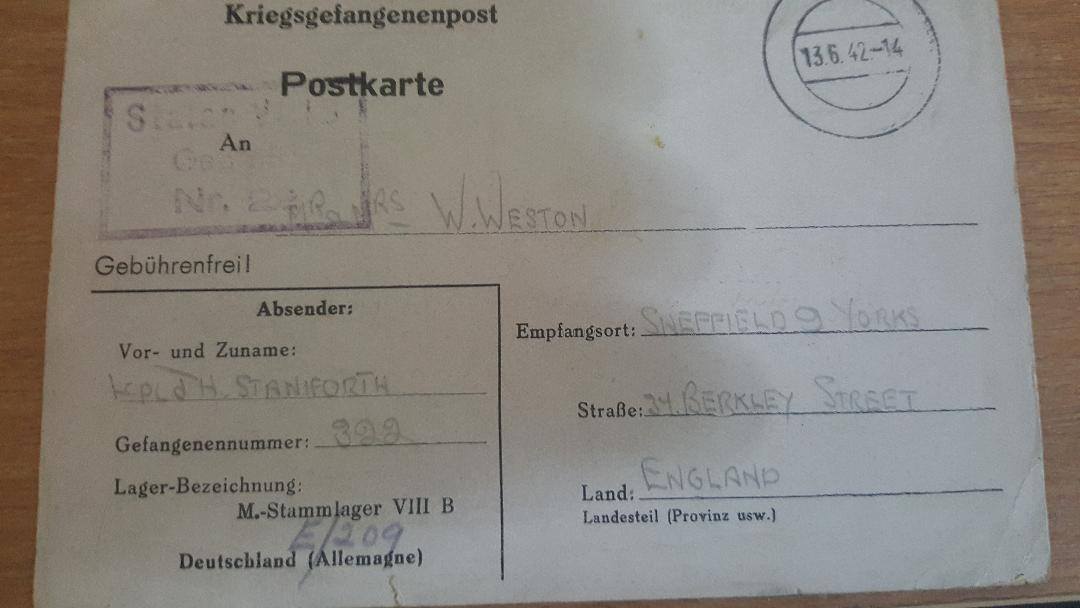 Kriegsgefangenenpost
13.6.42-14
Postkarte
An
Nr.
MRS W. WESTON
Gebührenfrei!
Absender:
Vor- und Zuname:
H. STANIFORTH
Gefangenennummer: 322
Lager-Bezeichnung:
M.-Stammlager VIII B
E/209
Deutschland (Allemagne)
Empfangsort: SHEFFIELD 9 YORKS
Straße: 34. BERKLEY STREET
Land: ENGLAND
Landesteil (Provinz usw.)